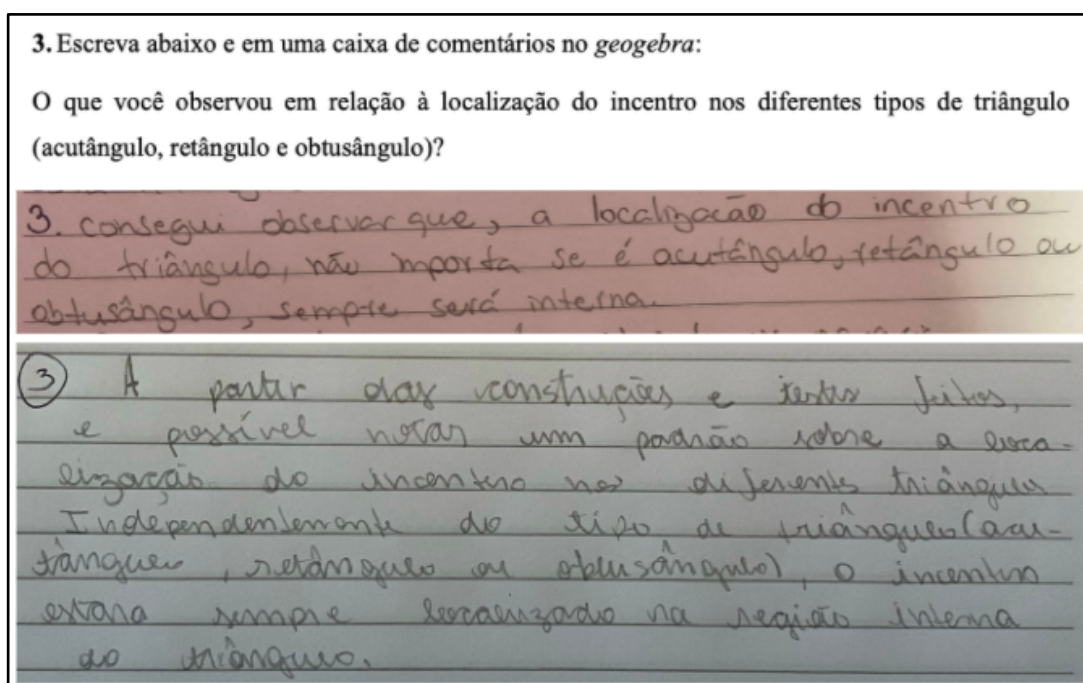 3. Escreva abaixo e em uma caixa de comentários no geogebra:
O que você observou em relação à localização do incentro nos diferentes tipos de triângulo
(acutângulo, retângulo e obtusângulo)?
3. consegui observar que, a localização do incentro
do triângulo, não importa se é acutângulo, retângulo ou
obtusângulo, sempre será interna.
3 A partir das construções e testes feitos,
e possível notar um padrão sobre a loca-
lização do incentro nos diferentes triângulos
Independentemente do tipo de triângulo (acu-
tângulo, retângulo ou obtusângulo), o incentro
estara sempre localizado na região interna
do triângulo.